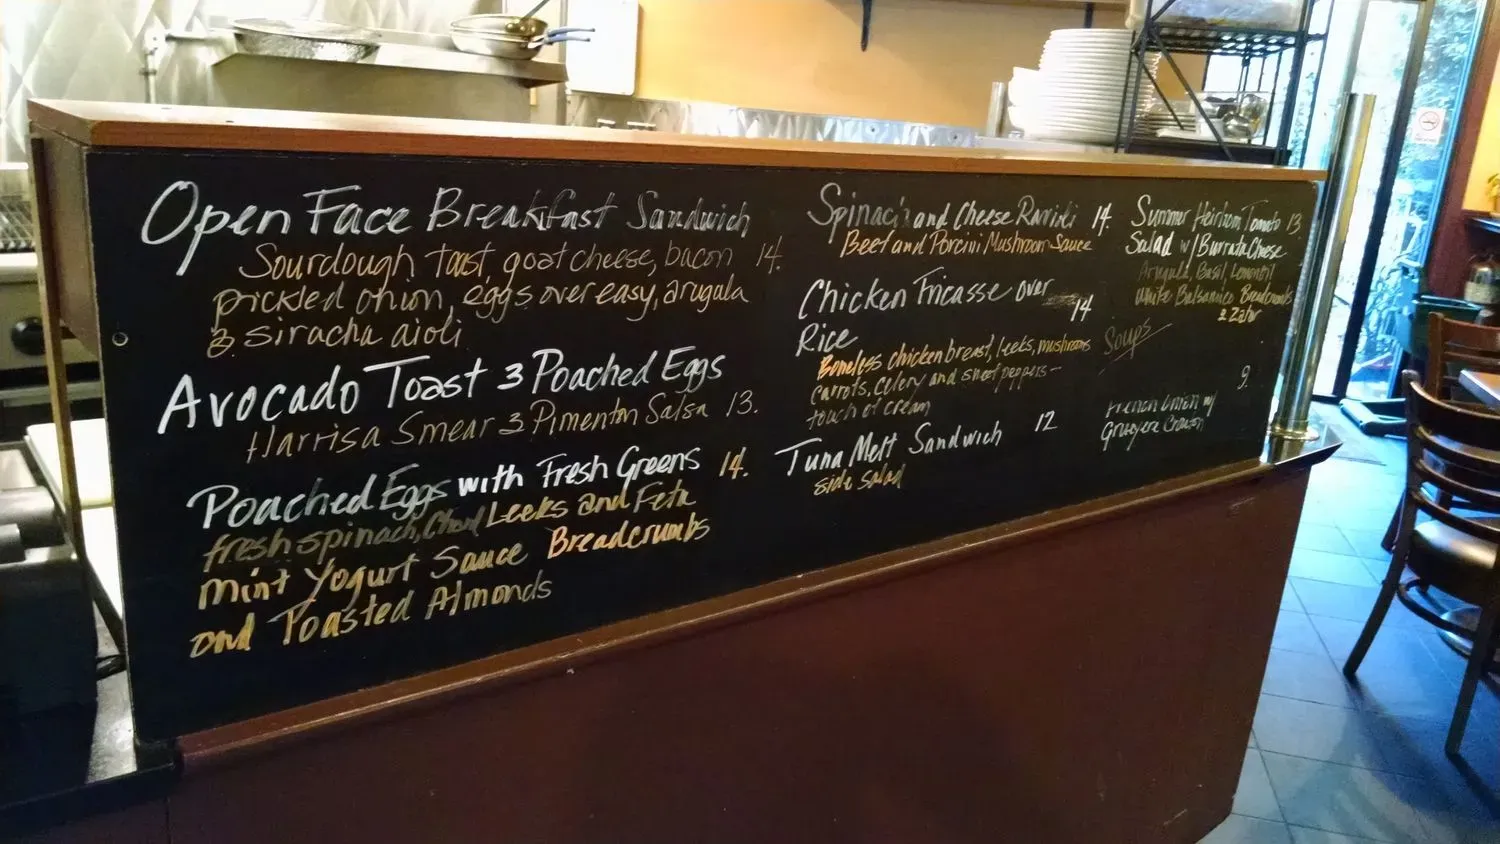 Open Face Breakfast Sandwich
Sourdough toast, goat cheese, bacon 14.
pickled onion, eggs over easy, arugula
& siracha aioli
Avocado Toast & Poached Eggs
Harrisa Smear & Pimenton Salsa 13.
Poached Eggs with Fresh Greens 14.
fresh spinach, Chard Leeks and Feta
Mint Yogurt Sauce Breadcrumbs
and Toasted Almonds
Spinach and Cheese Ravioli 14.
Beef and Porcini Mushroom Sauce
Chicken Fricasse over 14
Rice
Boneless chicken breast, leeks, mushrooms
carrots, celery and sweet peppers -
touch of cream
Tuna Melt Sandwich 12
side salad
Summer Heirloom Tomato 13
Salad w/ Burrata Cheese
Arugula, Basil, Lemon oil
White Balsamico Breadcrumbs
& Zatar
Soups
9.
French Onion w/
Gruyere Crouton